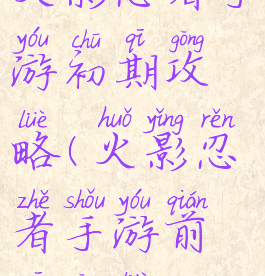 yóu chū qī gōng
游初期攻
lüè huǒ yǐng rěn
略(火影忍
zhě shǒu yóu qián
者手游前